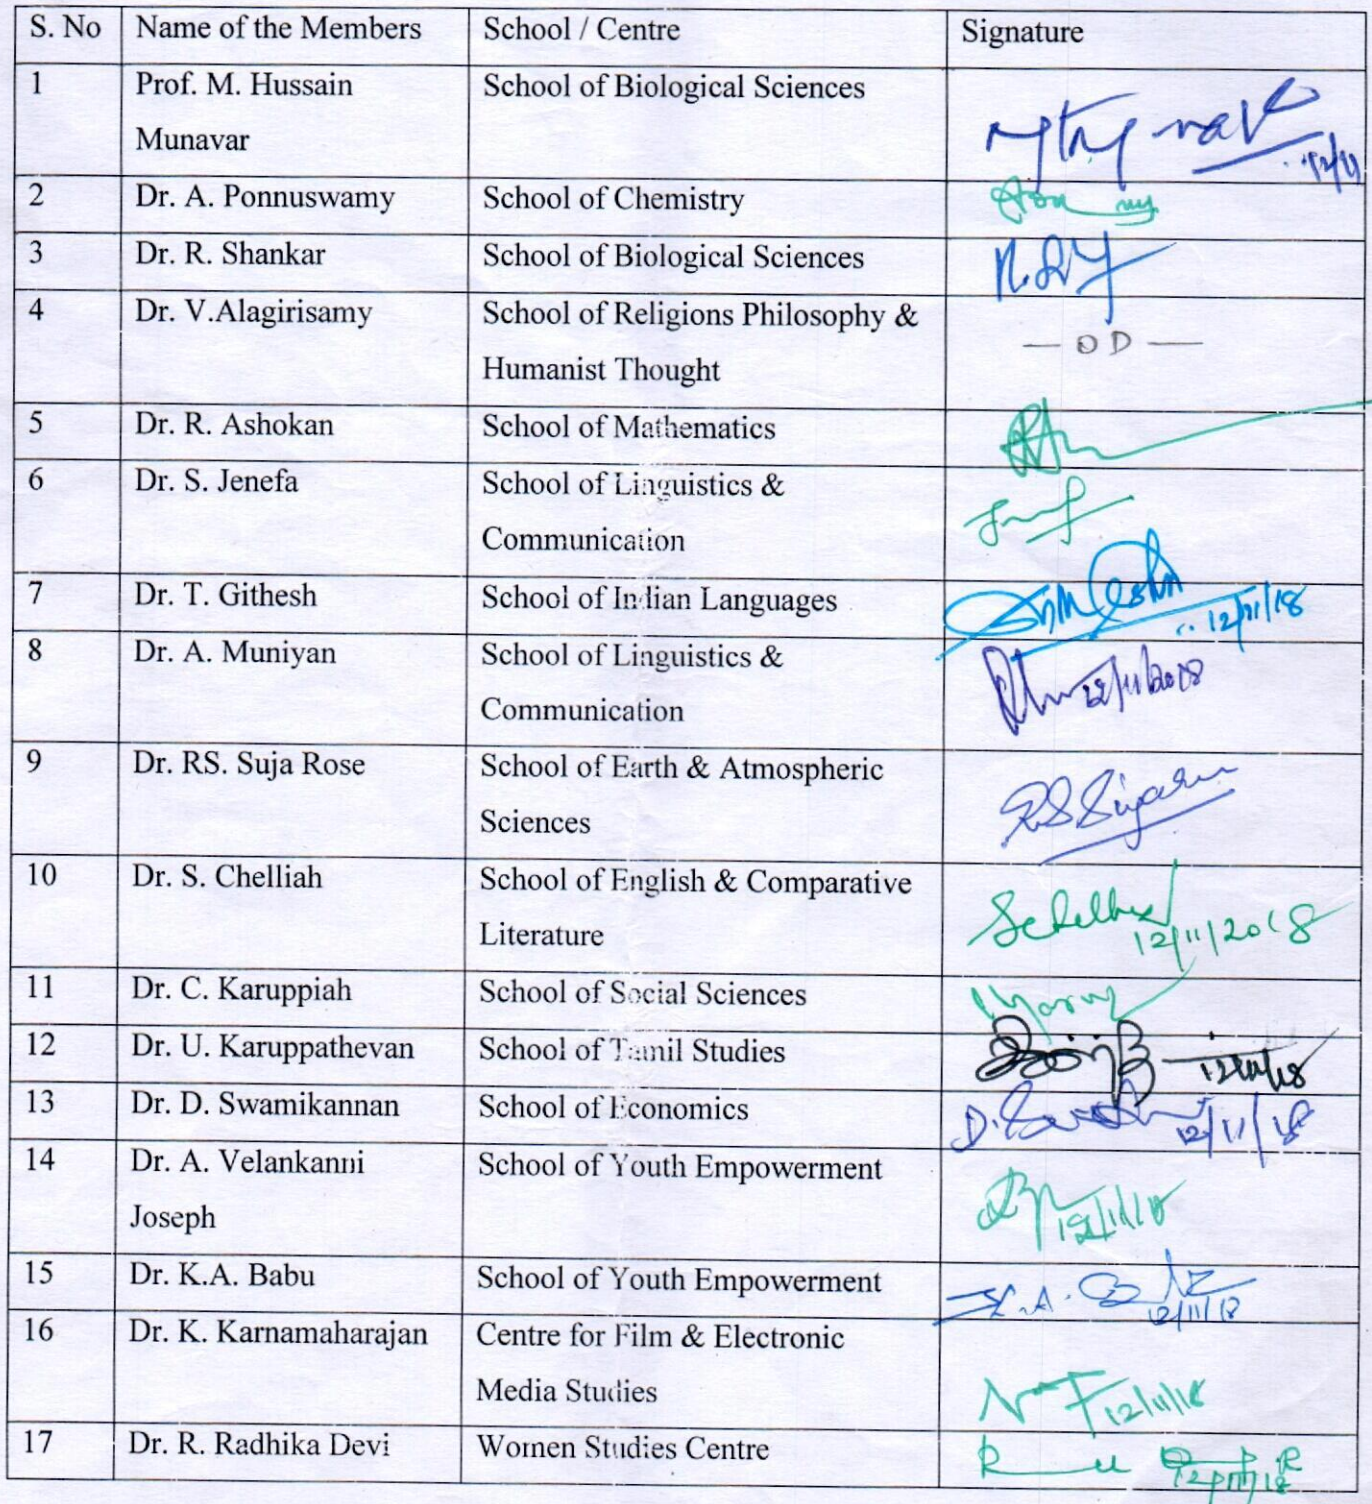 S. No Name of the Members School / Centre Signature
1 Prof. M. Hussain School of Biological Sciences
Munavar
12/11
2 Dr. A. Ponnuswamy School of Chemistry
3 Dr. R. Shankar School of Biological Sciences
4 Dr. V.Alagirisamy School of Religions Philosophy &
— OD —
Humanist Thought
5 Dr. R. Ashokan School of Mathematics
6 Dr. S. Jenefa School of Linguistics &
Communication
7 Dr. T. Githesh School of Indian Languages 12/11/18
8 Dr. A. Muniyan School of Linguistics &
12/11/2018
Communication
9 Dr. RS. Suja Rose School of Earth & Atmospheric
Sciences
10 Dr. S. Chelliah School of English & Comparative
Literature 12/11/2018
11 Dr. C. Karuppiah School of Social Sciences
12 Dr. U. Karuppathevan School of Tamil Studies 12/11/18
13 Dr. D. Swamikannan School of Economics 12/11/18
14 Dr. A. Velankanni School of Youth Empowerment
Joseph 12/11/18
15 Dr. K.A. Babu School of Youth Empowerment K.A. 12/11/18
16 Dr. K. Karnamaharajan Centre for Film & Electronic
Media Studies 12/11/18
17 Dr. R. Radhika Devi Women Studies Centre 12/11/18